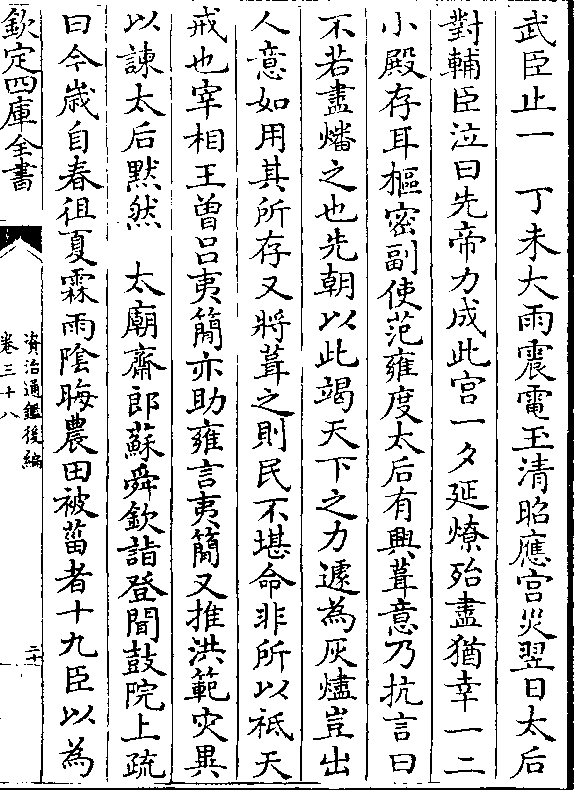 武臣止一　丁未大雨震電玉清昭應宫災翌日太后
對輔臣泣曰先帝力成此宫一夕延燎殆盡猶幸一二
小殿存耳樞密副使范雍度太后有興葺意乃抗言曰
不若盡燔之也先朝以此竭天下之力遽為灰燼豈出
人意如用其所存又將葺之則民不堪命非所以祗天
戒也宰相王曾吕夷簡亦助雍言夷簡又推洪範灾異
以諫太后默然　太廟齋郎蘇舜欽詣登聞鼓院上疏
曰今歳自春徂夏霖雨隂晦農田被菑者十九臣以為
欽定四庫全書
資治通鑑後編
卷三十八
二十